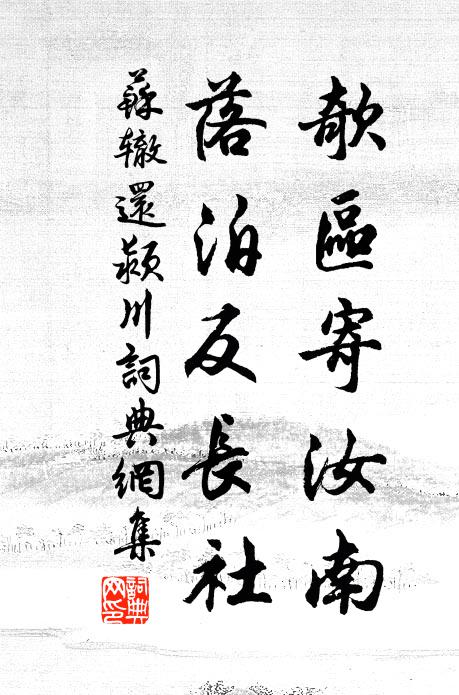 欹區寄汝南
落泊反長社
蘇轍還潁川詞典網集
詞典
网印